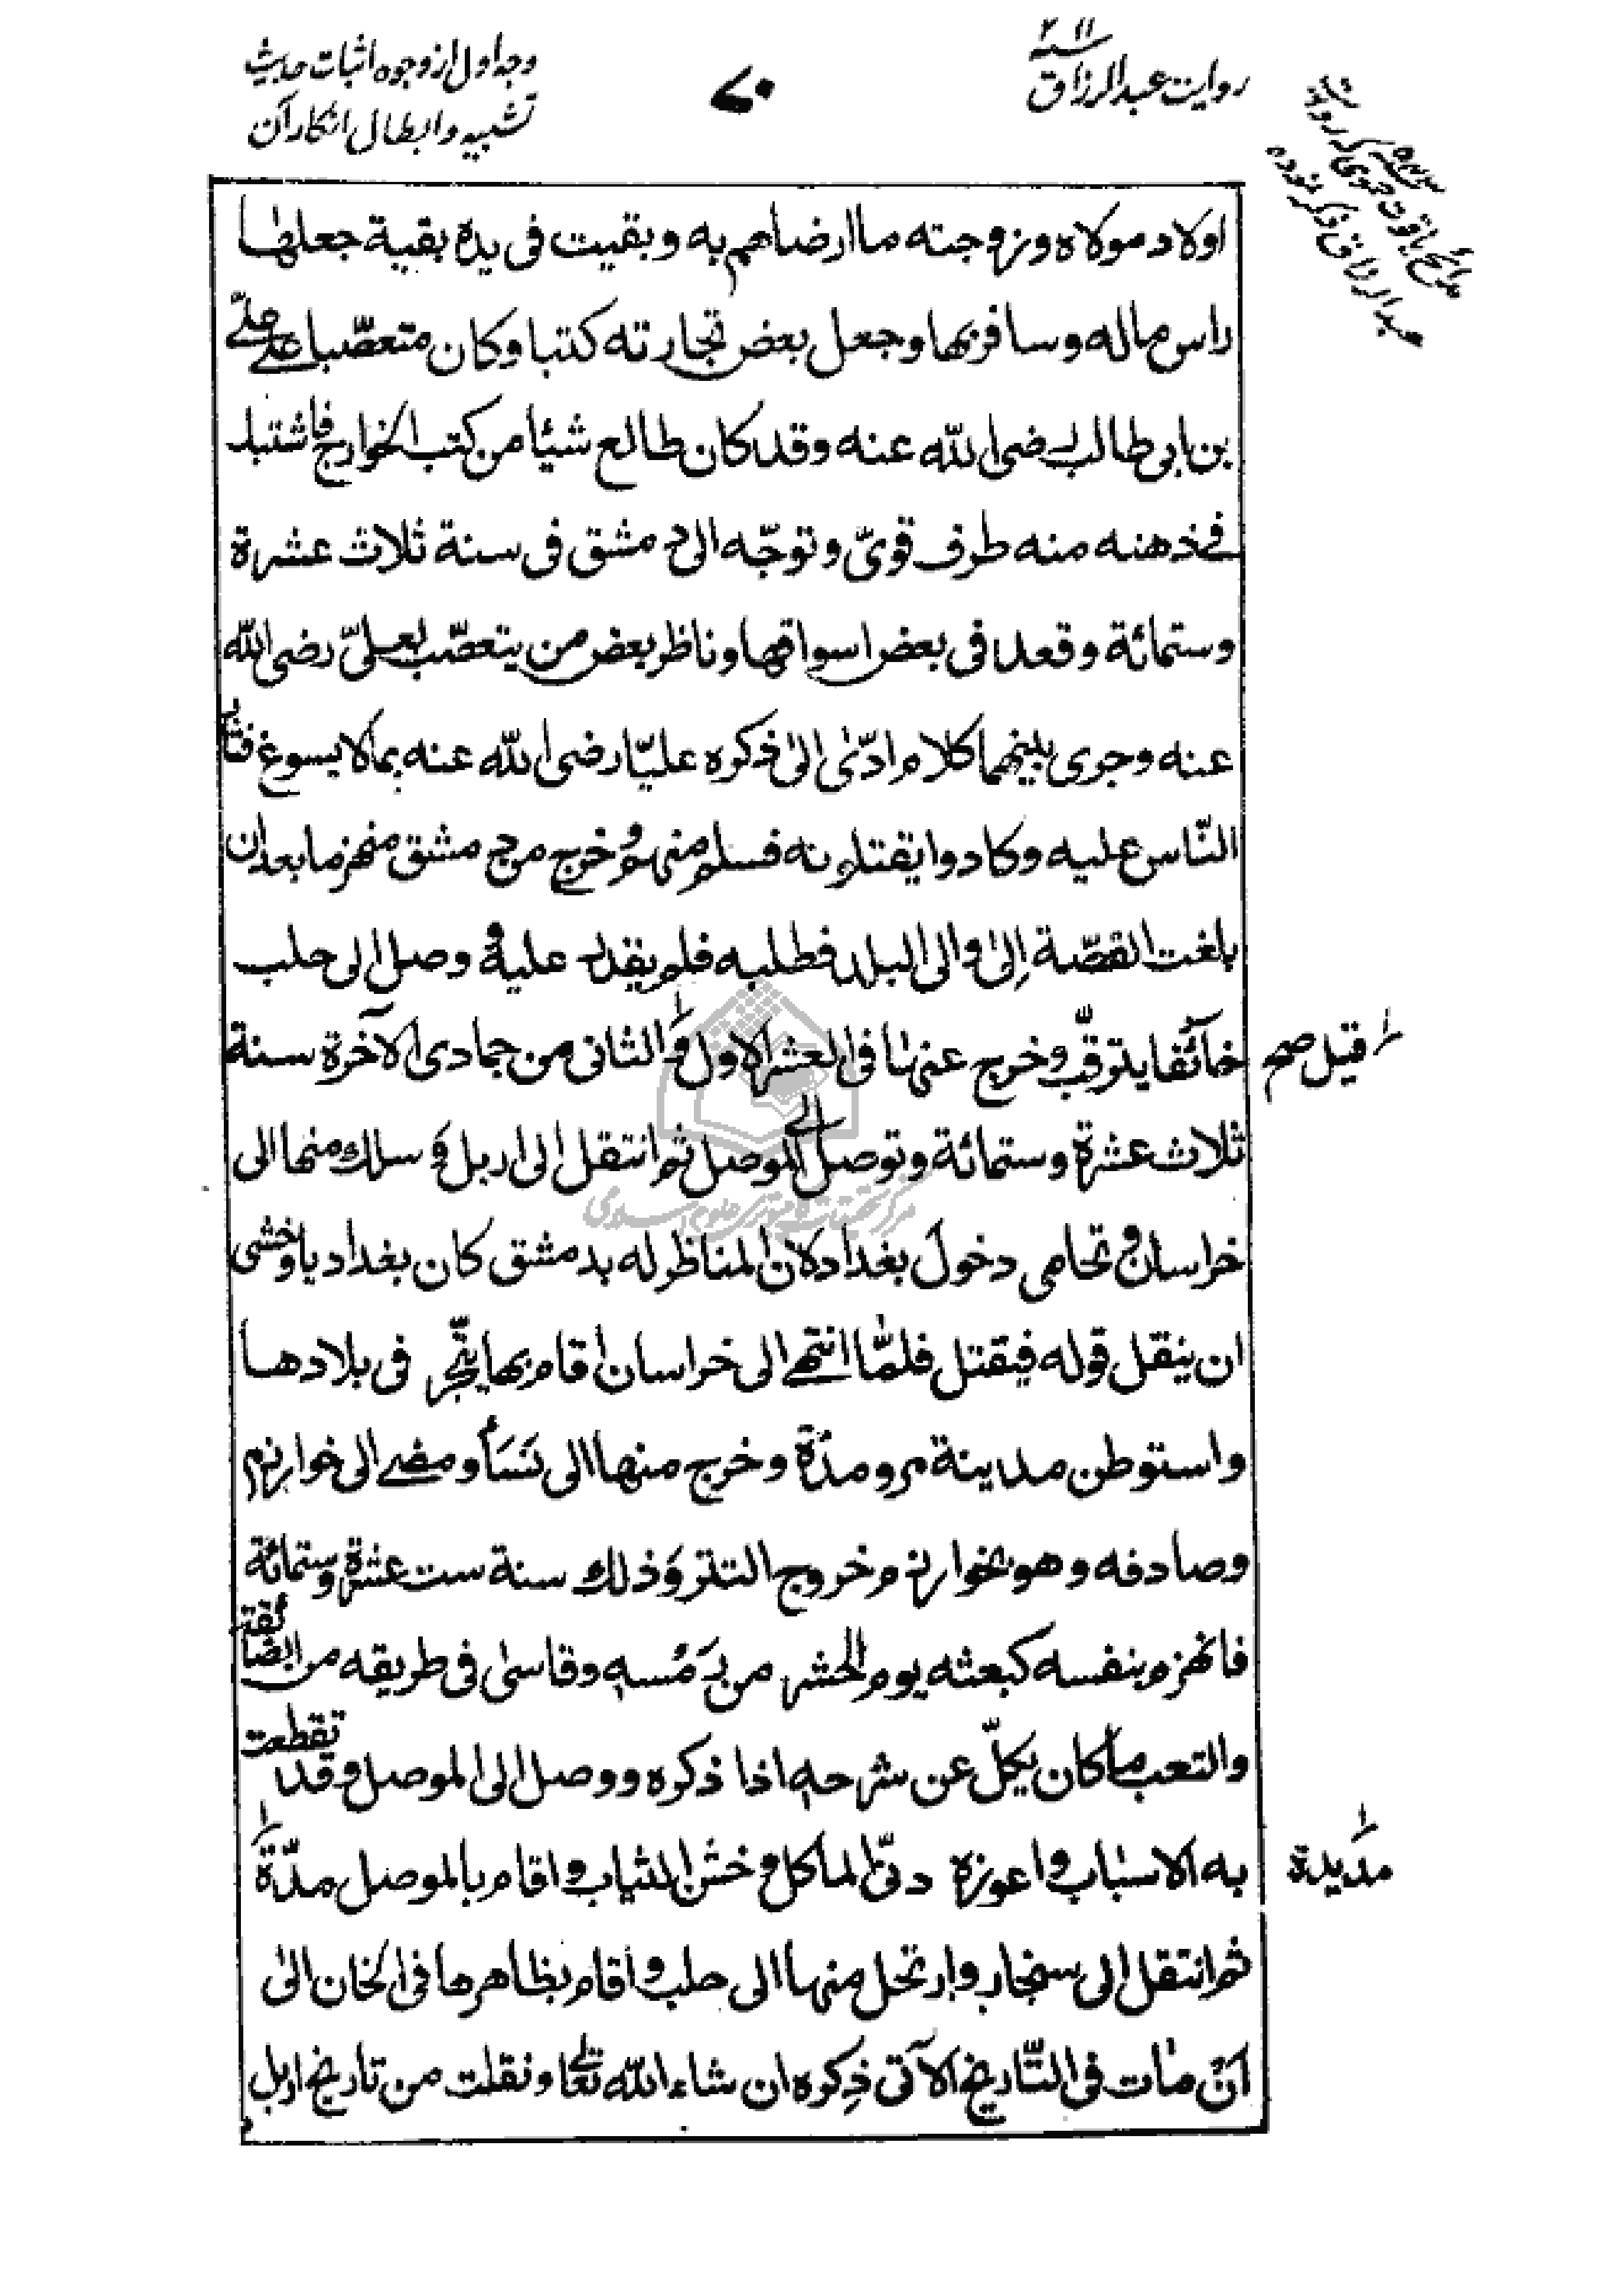 روايت عبدالرزاق
سنه ٢١١
٧٠
وجه اول از وجوه اثبات حديث
تشبيه و ابطال انكار آن
مدائح ياقوت حموى كه
عبدالرزاق ذكر نموده
اولاد مولاه وزوجته ما ارضاهم به وبقيت فى يده بقية جعلها
راس ماله وسافر بها وجعل بعض تجارته كتبا وكان متعصّبا على علىّ
بن ابى طالب رضى الله عنه وقد كان طالع شيئا من كتب الخوارج فاشتبك
فى ذهنه منه طرف قوىّ وتوجّه الى دمشق فى سنة ثلاث عشرة
وستمائة وقعد فى بعض اسواقها وناظر بعض من يتعصّب لعلىّ رضى الله
عنه وجرى بينهما كلام ادّى الى ذكره عليّا رضى الله عنه بما لا يسوغ فثار
النّاس عليه وكادوا يقتلونه فسلم منهم وخرج من دمشق منهزما بعد ان
بلغت القصّة الى والى البلد فطلبه فلم يقدر عليه و وصل الى حلب
خائفا يترقّب وخرج عنها فى العشر الاول والثانى من جمادى الآخرة سنة
قيل صح
ثلاث عشرة وستمائة وتوصل الى الموصل ثم انتقل الى اربل و سلك منها الى
خراسان و تحامى دخول بغداد لان المناظر له بدمشق كان بغداديا وخشى
ان ينقل قوله فيقتل فلمّا انتهى الى خراسان اقام بها يتّجر فى بلادها
واستوطن مدينة مرو مدّة وخرج منها الى نَسَأ ومضى الى خوارزم
وصادفه وهو بخوارزم خروج التتر وَذلك سنة ست عشرة وستمائة
فانهزم بنفسه كبعثه يوم الحشر من رَمْسه وقاسى فى طريقه من المضائقة
والتعب ما كان يكلّ عن شرحه اذا ذكره ووصل الى الموصل وقد تقطعت
به الاسباب واعوزه دنىّ الماكل و خشن الثياب واقام بالموصل مدّة
مديدة
ثم انتقل الى سنجار وارتحل منها الى حلب واقام بظاهرها فى الخان الى
اَنْ مات فى التّاريخ الآتى ذكره ان شاء الله تعالى ونقلت من تاريخ اربل
مركز تحقيقات كامپيوترى علوم اسلامى